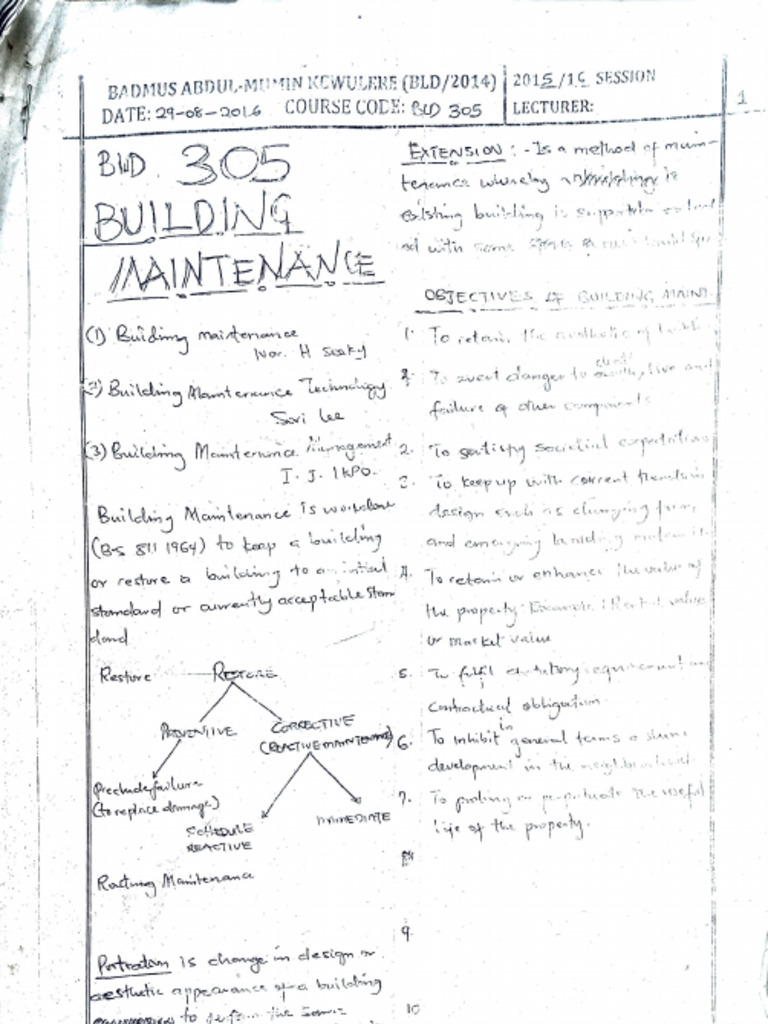 BADMUS ABDUL-MUMIN KEWULERE (BLD/2014)
DATE: 29-08-2016 COURSE CODE: BLD 305
2015/16 SESSION
LECTURER:
1
BLD 305
BUILDING
MAINTENANCE
(1) Building maintenance
Ivor. H Seeley
(2) Building Maintenance Technology
Lee
(3) Building Maintenance Management
I. J. Ikpo.
Building Maintenance is workdone
(BS 811 1964) to keep a building
or restore a building to an initial
standard or currently acceptable stan
dard
Restore RESTORE
PREVENTIVE
CORRECTIVE
(REACTIVE MAINTENANCE)
Preclude failure
(to replace damage)
SCHEDULE
REACTIVE
IMMEDIATE
Maintenance
is change in design or
aesthetic appearance of a building
to the same
EXTENSION :- Is a method of main-
tenance whereby
existing building is
ed with some
OBJECTIVES OF BUILDING MAINT.
1. To retain the aesthetic of
2. To avert danger to live and
failure of other components
2. To satisfy societal expectation
3. To keep up with current trends in
design such as changing form,
and emerging building
4. To retain or enhance the value of
the property. Example: Rental value
or market value
5. To fulfil statutory requirement
contractual obligation
6. To inhibit in general terms a slum
development in the neighbourhood
7. To prolong or perpetuate the useful
life of the property.
8
9.
10